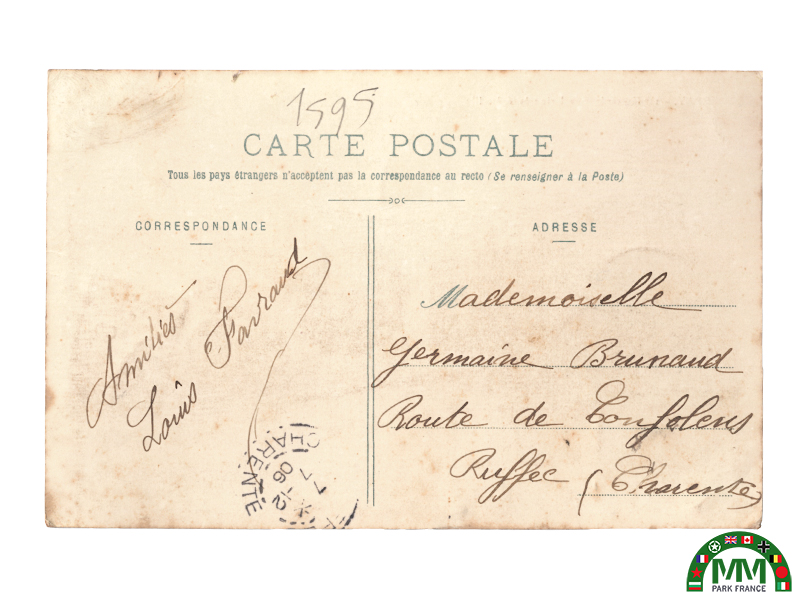 1595
CARTE POSTALE
Tous les pays étrangers n'acceptent pas la correspondance au recto (Se renseigner à la Poste)
CORRESPONDANCE
Amitiés
Louis Favraud
CHARENTE
7-12
06
ADRESSE
Mademoiselle
Germaine Brunaud
Route de Confolens
Ruffec (Charente)
MM
PARK FRANCE